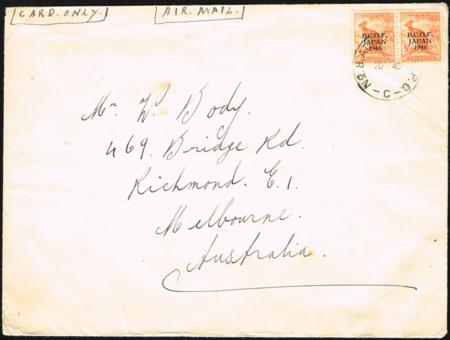 CARD. ONLY. AIR. MAIL.
B.C.O.F. JAPAN 1946 B.C.O.F. JAPAN 1946
AUSTRALIA
Mr W. Body.
469. Bridge Rd.
Richmond. E.1.
Melbourne.
Australia.